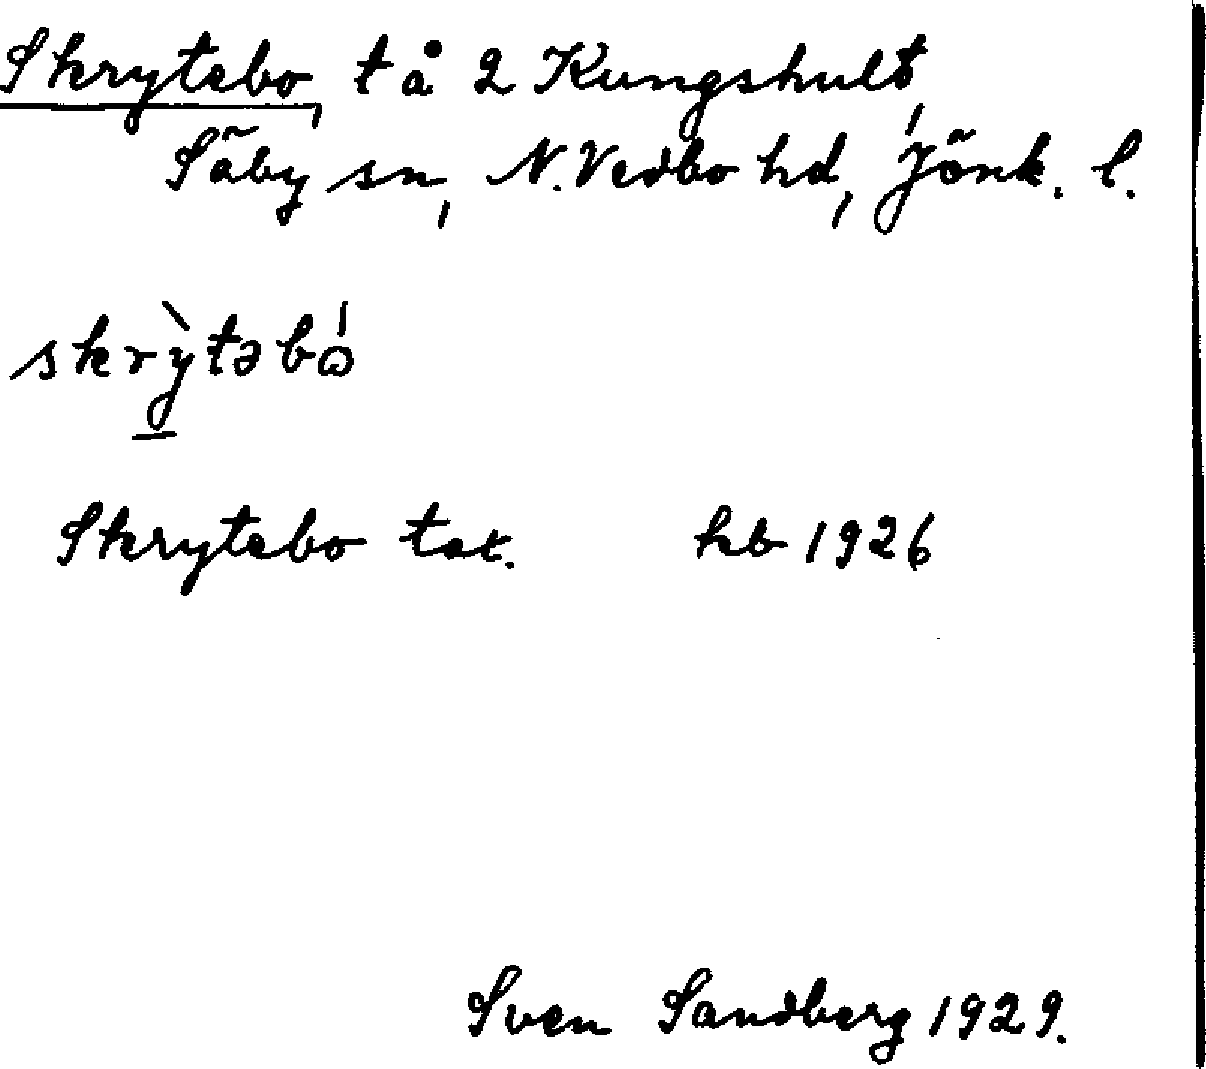 Skrytebo, t å 2 Kungshult,
Säby sn, N. Vedbo hd, Jönk. l.
skrỳ̠təbɷ́
Skrytebo tot. hb 1926
Sven Sandberg 1929.